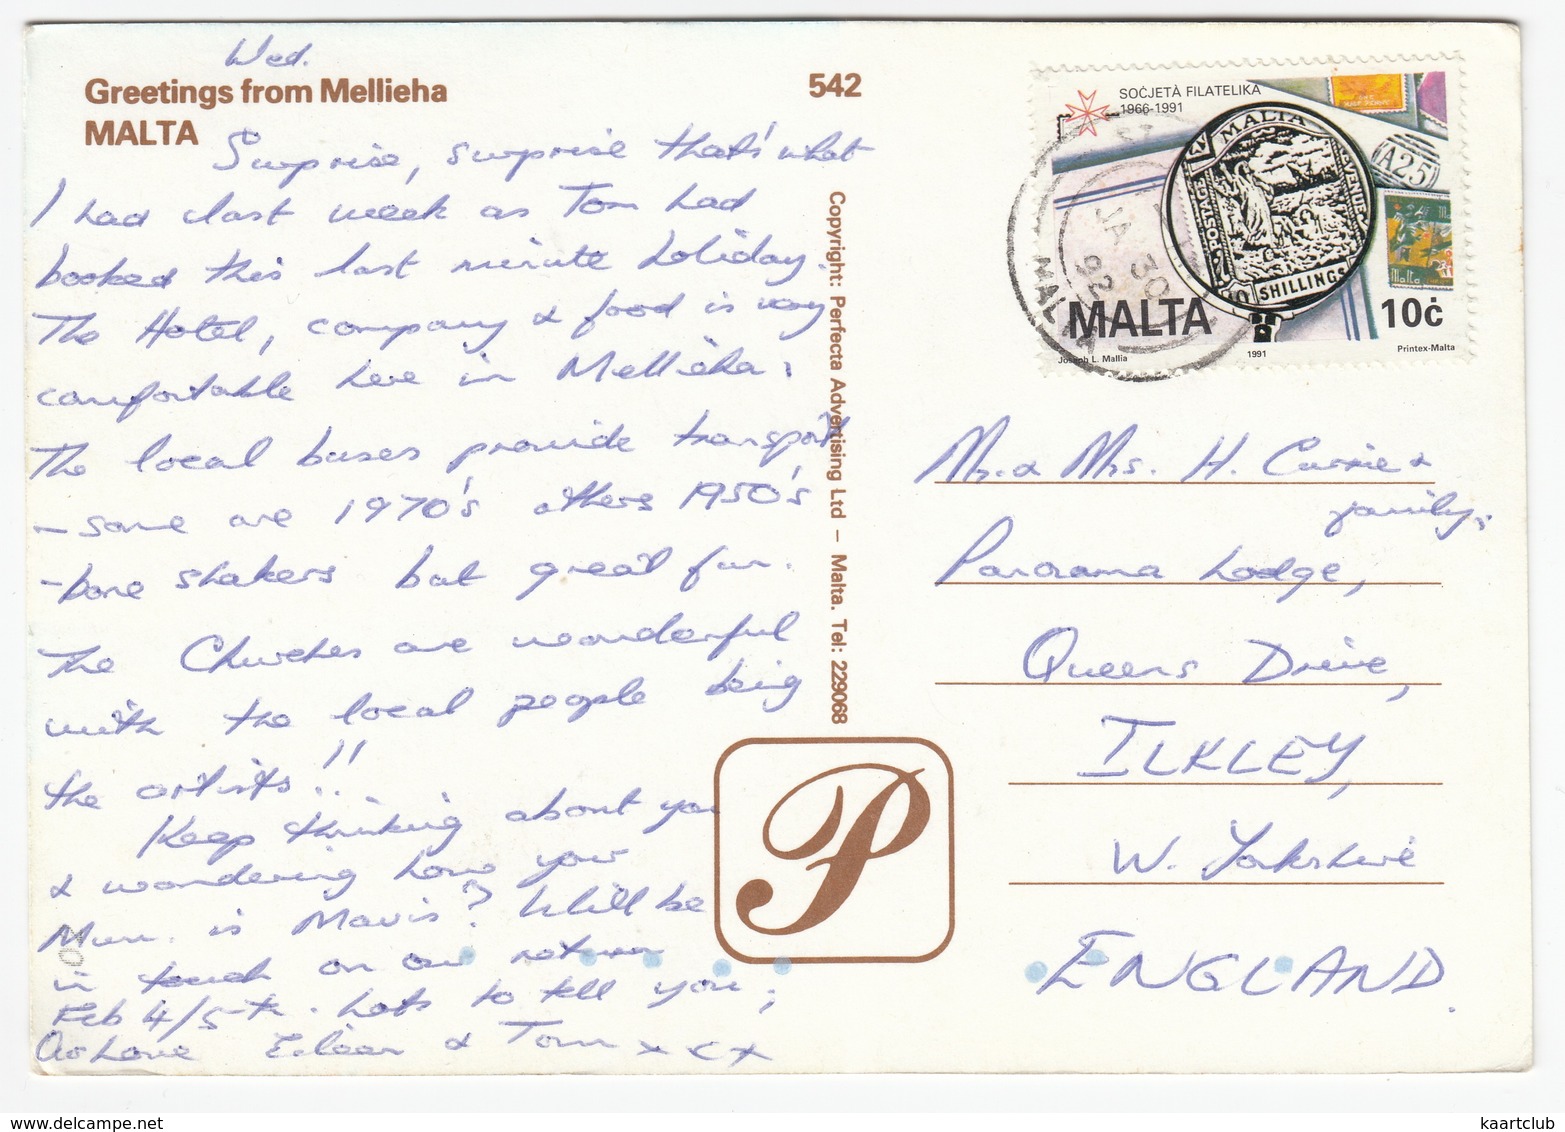 Wed.
Greetings from Mellieha
MALTA
542
Surprise, surprise that's what
I had last week as Tom had
booked this last minute holiday.
The Hotel, company & food is very
comfortable here in Mellieha.
The local buses provide transport
- some are 1970's others 1950's
- bone shakers but great fun.
The Churches are wonderful
with the local people being
the artists!!
Keep thinking about you
& wondering how your
Mum is Mavis? Will be
in touch on our return
Feb 4/5th. Lots to tell you,
Our Love Eileen & Tom x x x
Copyright: Perfecta Advertising Ltd – Malta. Tel: 229068
P
SOĊJETÀ FILATELIKA
1966-1991
MALTA
POSTAGE
REVENUE
10 SHILLINGS
A25
Malta
MALTA 10ċ
Joseph L. Mallia 1991 Printex-Malta
JA 30
92
MALTA
Mr. & Mrs. H. Currie &
family,
Panorama Lodge,
Queens Drive,
ILKLEY,
W. Yorkshire
ENGLAND.
kaartclub